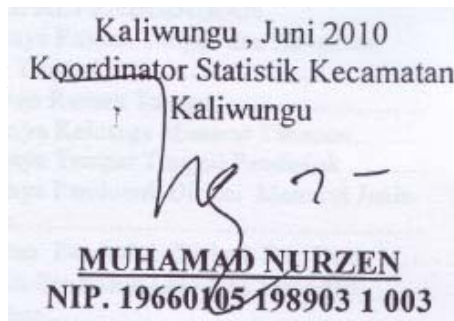 Kaliwungu , Juni 2010
Koordinator Statistik Kecamatan
Kaliwungu
MUHAMAD NURZEN
NIP. 19660105 198903 1 003